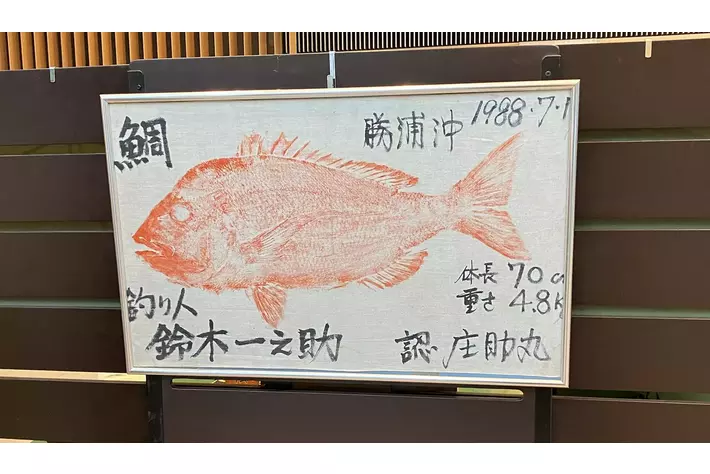 鯛
勝浦沖
1988.7.1
体長 70c
重さ 4.8K
釣り人
鈴木一之助
認 庄助丸